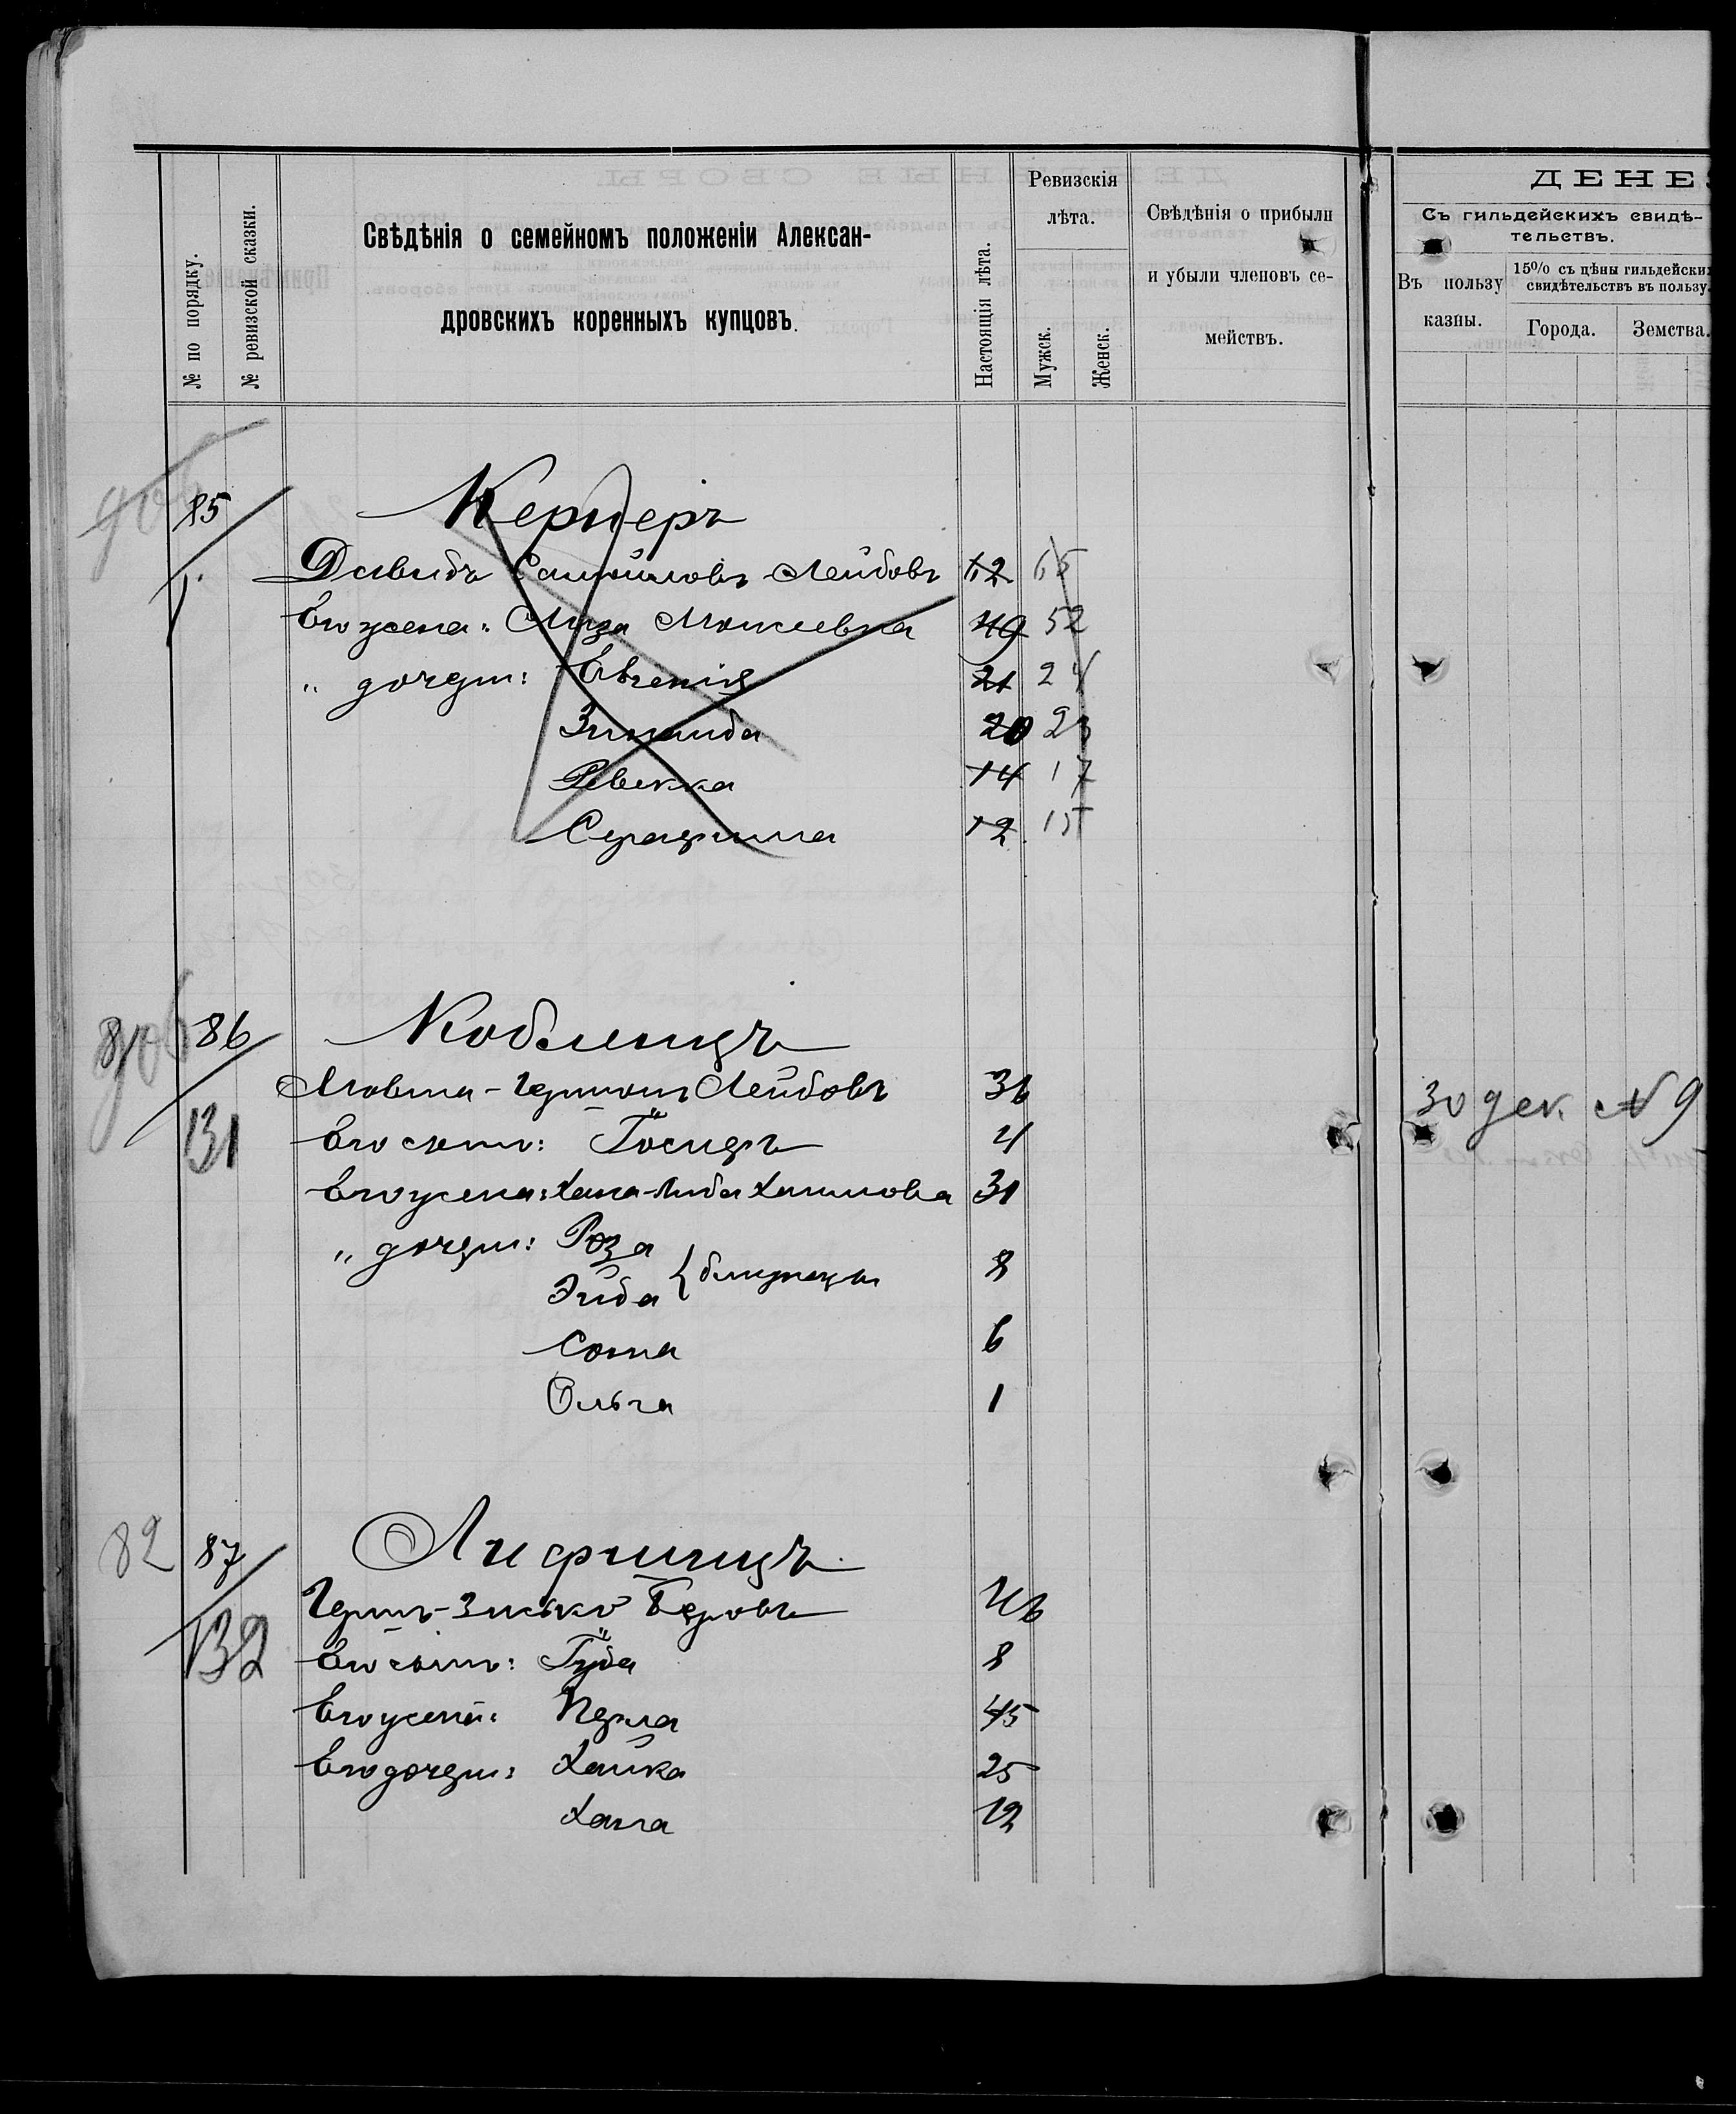 № по порядку.
№ ревизской сказки.
Свѣдѣнія о семейномъ положеніи Алексан-
дровскихъ коренныхъ купцовъ.
Настоящія лѣта.
Ревизскія
лѣта.
Мужск.
Женск.
Свѣдѣнія о прибыли
и убыли членовъ се-
мействъ.
ДЕНЕ
Съ гильдейскихъ свидѣ-
тельствъ.
Въ пользу
казны.
15% съ цѣны гильдейски
свидѣтельствъ въ пользу
Города.
Земства.
85 Кернеръ
Давидъ Самойловъ Лейбовъ 62 65
Его жена: Лиза Моисеевна 49 52
" дочери: Евгенія 21 24
Зинаида 20 23
Ревекка 14 17
Серафима 12 15
86 Кобленцъ
Мовша-Гершонъ Лейбовъ 36
30 дек. № 9
131 Его сынъ: Іосифъ 4
Его жена: Хана-Либа Хаимова 31
" дочери: Роза
Эйда } близнецы 8
Соня 6
Ольга 1
82 87 Лифшицъ
Гершъ-Зиська Беровъ 46
132 Его сынъ: Іуда 8
Его жена: Перла 45
Его дочери: Хайка 25
Хана 12